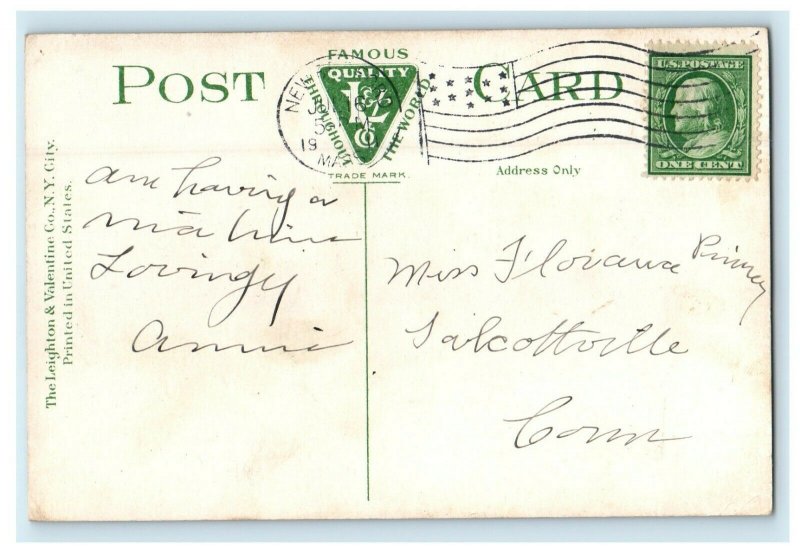 POST CARD
FAMOUS
QUALITY
THROUGHOUT THE WORLD
L&V
Co
TRADE MARK.
NEW
16
5 M
19
MA
U.S. POSTAGE
ONE CENT
Address Only
The Leighton & Valentine Co., N.Y. City.
Printed in United States.
am having a
nice time
Lovingly
Annie
Miss Floriana Pinney
Talcottville
Conn